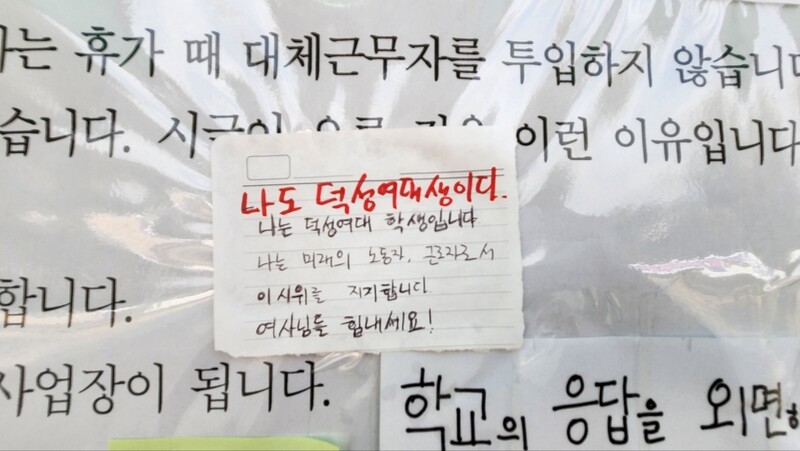 는 휴가 때 대체근무자를 투입하지 않습니다
습니다. 시급이 이런 이유입니다
나도 덕성여대생이다.
나는 덕성여대 학생입니다
나는 미래의 노동자, 근로자로서
이 시위를 지지합니다
여사님들 힘내세요!
합니다.
사업장이 됩니다.
학교의 응답을 외면